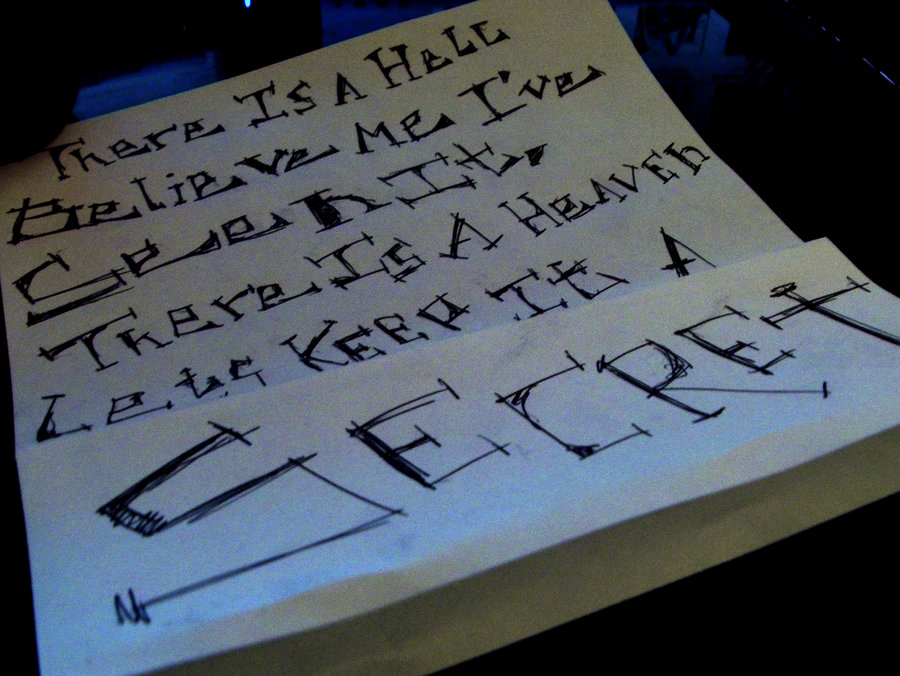 There Is A Hell
Believe Me I've
Seen It.
There Is A Heaven
Lets Keep It A
SECRET